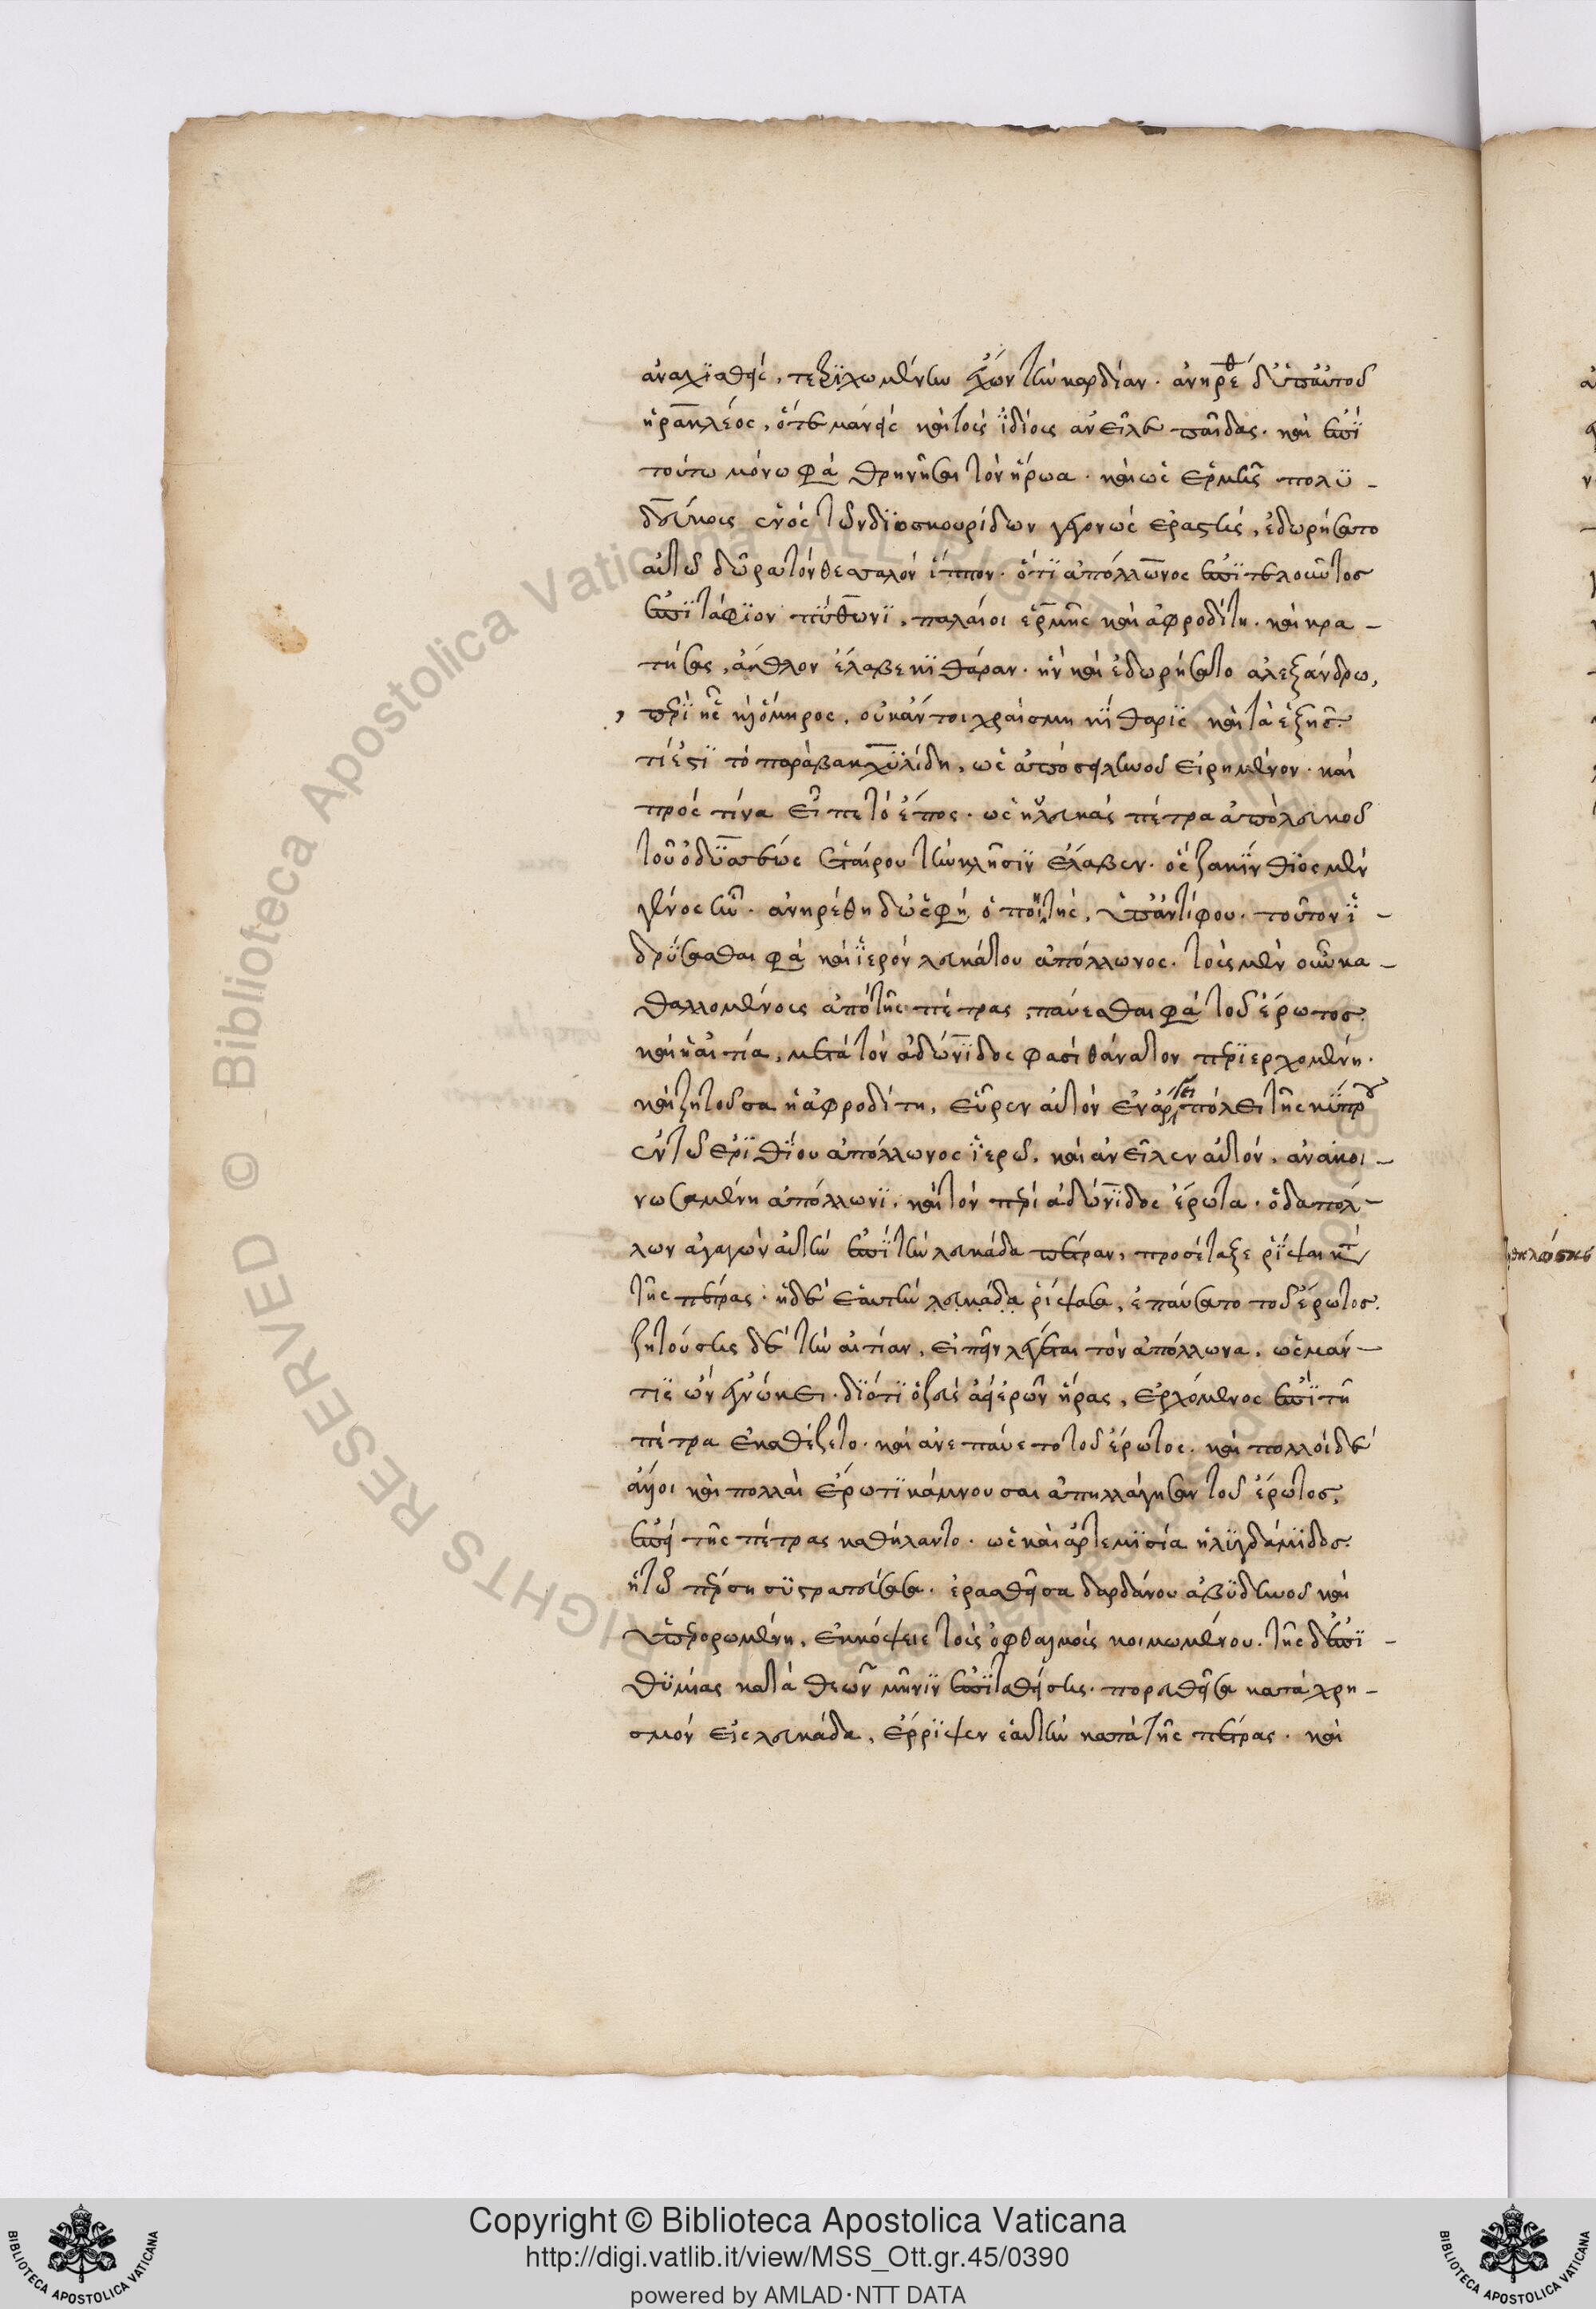 ἀναχϊσθεὶς, τετριχωμένην ἔχων τὴν καρδίαν. ἀνηρέθ δ' ὑπ' αὐτοῦ
ἡρακλέος, ὅτε μανεὶς καὶ τοὺς ἰδίους ἀνεῖλε παῖδας. καὶ ἐπὶ
τούτω μόνω φα θρηνῆσαι τὸν ἥρωα. καὶ ὡς ἑρμῆς πολϋ-
δεύκους ἑνὸς τῶν διοσκουρίδων γεγονὼς ἐραστὴς, ἐδωρήσατο
αὐτῶ δῶρα τὸν θεσσαλὸν ἵππον. ὅτι ἀπόλλωνος ἐπιτελοῦντος
ἐπιτάφιον πύθωνι, παλαίοι ἑρμῆς καὶ ἀφροδίτη. καὶ κρα-
τήσας, ἆθλον ἔλαβε κιθάραν. ἣν καὶ ἐδωρήσατο ἀλεξάνδρω,
περὶ ἧς κ ὅμηρος. οὐκ ἄν τοι χραίσμη κίθαρις καὶ τὰ ἑξῆς.
τί ἐστι τὸ παρὰ βακχυλίδη, ὡς ἀπὸ σειληνοῦ εἰρημένον. καὶ
πρὸς τίνα εἶπε τὸ ἔπος. ὡς ἡ λευκὰς πέτρα ἀπὸ λευκοῦ
τοῦ ὀδυσσέως ἑταίρου τὴν κλῆσιν ἔλαβεν. ὃς ζακύνθιος μὲν
γένος ἦν. ἀνηρέθη δ' ὥς φη ὁ ποιητὴς, ὑπ' ἀντίφου. τοῦτον ἱ-
δρύσασθαι φα καὶ ἱερὸν λευκάτου ἀπόλλωνος. τοὺς μὲν οὖν κα-
θαλλομένους ἀπὸ τῆς πέτρας, παύεσθαι φα τοῦ ἔρωτος.
καὶ ἡ αἰτία, μετὰ τὸν ἀδώνιδος φασὶ θάνατον περιερχομένη.
καὶ ζητοῦσα ἡ ἀφροδίτη, εὗρεν αὐτὸν ἐν ἄργει πόλει τῆς κύπρου
ἐν τῶ ἐριθίου ἀπόλλωνος ἱερῶ. καὶ ἀνεῖλεν αὐτὸν, ἀνακοι-
νωσαμένη ἀπόλλωνι, καὶ τὸν περὶ ἀδώνιδος ἔρωτα. ὁ δ' ἀπόλ-
λων ἀγαγὼν αὐτὴν ἐπὶ τὴν λευκάδα πέτραν, προσέταξε ῥίψαι κτ
τῆς πέτρας. ἡ δὲ ἑαυτὴν λευκάδα ῥίψασα, ἐπαύσατο τοῦ ἔρωτος.
ζητούσης δὲ τὴν αἰτίαν, εἰπεῖν λέγεται τὸν ἀπόλλωνα, ὡς μάν-
τις ὢν ἐγνώκει. διότι ὁ ζεὺς ἀεὶ ἐρῶν ἥρας, ἐρχόμενος ἐπὶ τῆ
πέτρα ἐκαθέζετο. καὶ ἀνεπαύετο τοῦ ἔρωτος. καὶ πολλοὶ δὲ
ἄλλοι καὶ πολλαὶ ἔρωτι κάμνουσαι ἀπηλλάγησαν τοῦ ἔρωτος,
ἐπεὶ τῆς πέτρας καθήλαντο. ὡς καὶ ἀρτεμισία ἡ λυγδάμιδος.
ἡ τῶ πέρση συστρατεύσασα. ἐρασθεῖσα δαρδάνου ἀβυδηνοῦ καὶ
ὑπερορωμένη, ἐκκόψειε τοὺς ὀφθαλμοὺς κοιμωμένου. τῆς δ' ἐπι-
θυμίας κατὰ θεῶν μῆνιν ἐπιταθείσης. πορευθεῖσα κατὰ χρη-
σμὸν εἰς λευκάδα, ἔρριψεν ἑαυτὴν κατὰ τῆς πέτρας. καὶ
Copyright © Biblioteca Apostolica Vaticana
http://digi.vatlib.it/view/MSS_Ott.gr.45/0390
powered by AMLAD·NTT DATA